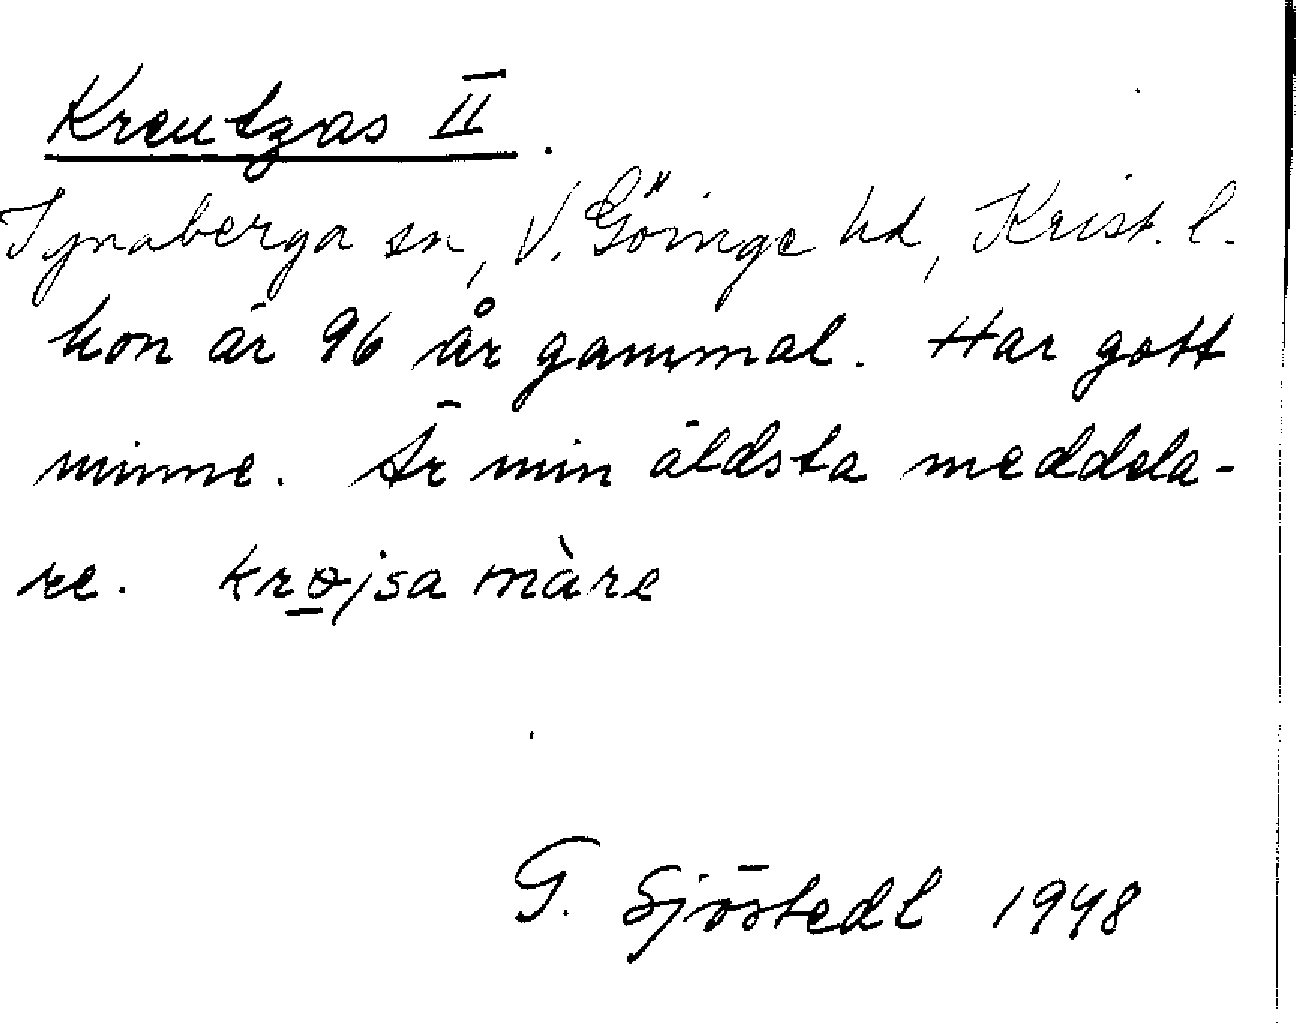 Kreutzas II.
Ignaberga sn, V. Göinge hd, Krist. l.
hon är 96 år gammal. Har gott
minne. Är min äldsta meddela-
re. krøjsa màre
G. Sjöstedt 1948